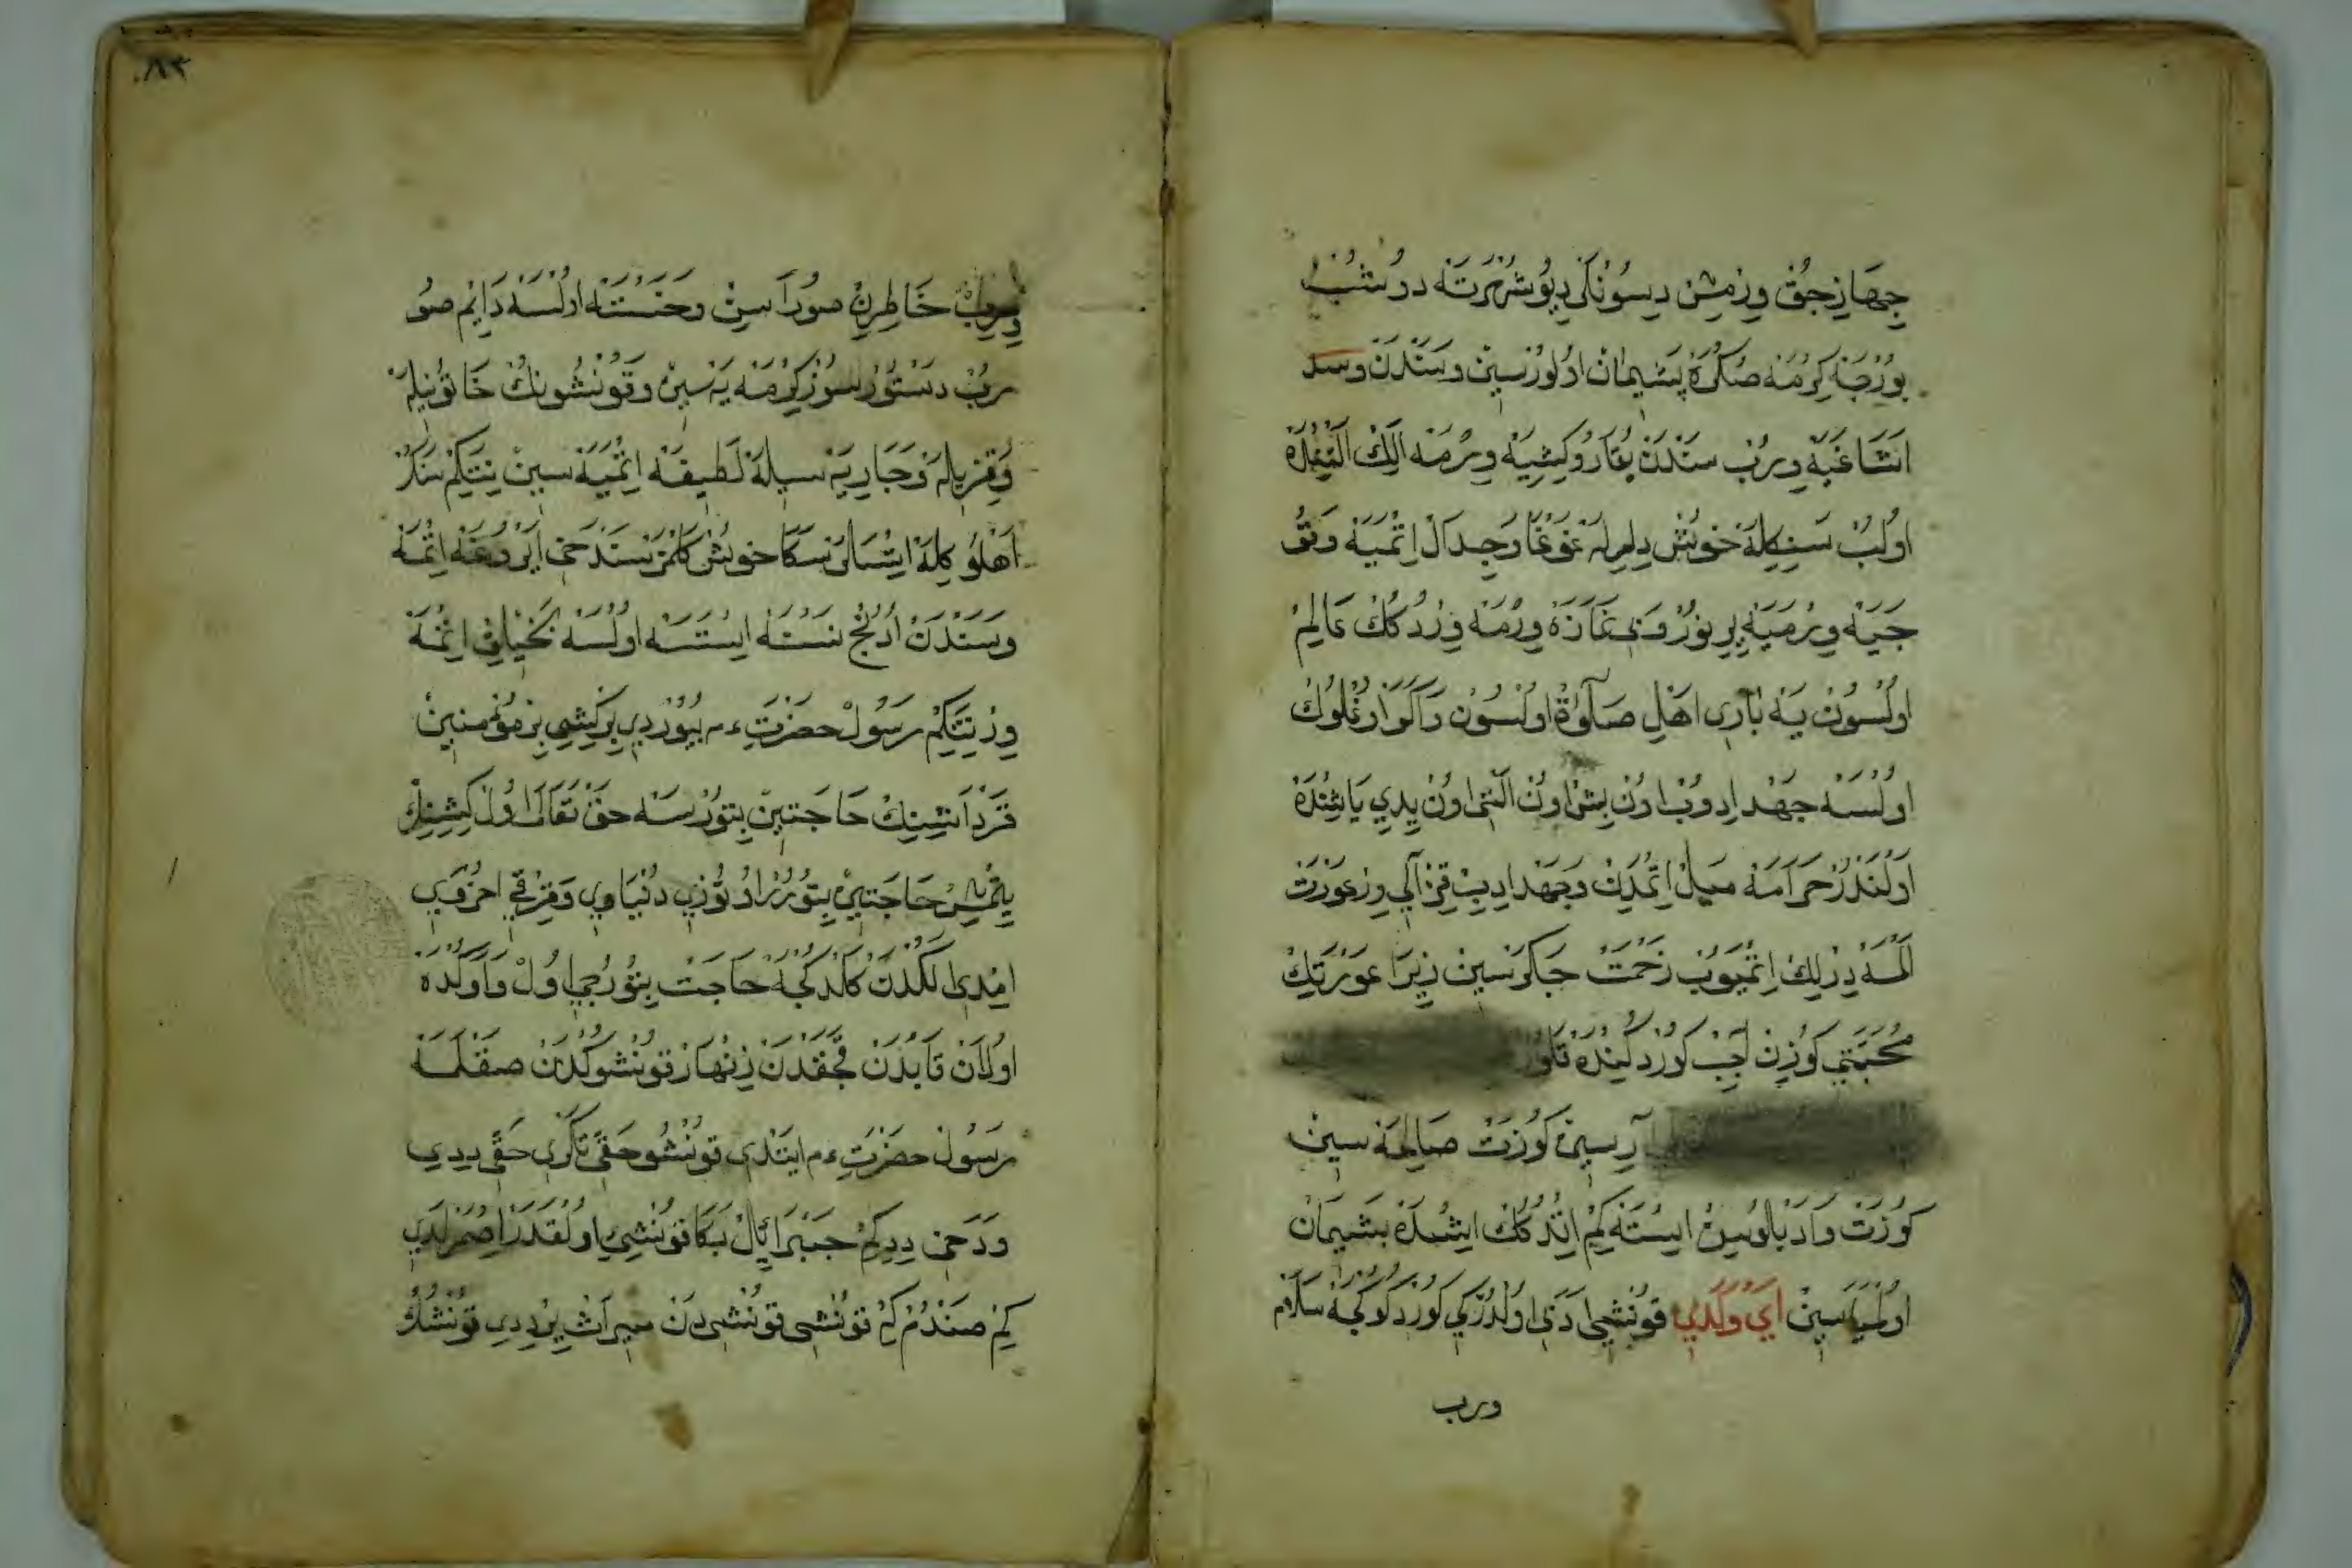 جِهَازِ جُقْ وِرْمِشْ دِيسُونْلَرْ دِيُو شُهْرَتَه دُوشُبْ
بُورْجَه كِرْمَه صُكْرَه پَشِيمَانْ اوُلُورْسِينْ وسَنْدَنْ
اَشَاغَيَه وِرُبْ سَنْدَنْ يُقَارُو كِشِيَه وِرْمَه اَلِكْ اَلْتِنْدَه
اوُلُبْ سَنِكِلَه خُوشْ دِلِرلَه غَوْغَا وَجِدَالْ اِتْمِيَه وَقُو
جَيَه وِرْمِيَه بِي نُورْ وَبِي نَمَازَه وِرْمَه وِرْدُكُكْ عَالِمْ
اوُلْسُونْ يَه بَارِي اَهْلِ صَلَوٰةْ اوُلْسُونْ وَاَكَرْ اوُغْلُوكْ
اوُلْسَه جَهْد اِدُوبْ اوُنْ بِشْ اوُنْ اَلْتِي اوُنْ يِدِي يَاشِنْدَه
اَوْلَنْدُرْ حَرَامَه مَيْلْ اِتْمَدِنْ وَجَهْد اِدِيبْ قِزْ اَلِي وِرْ عَوْرَتْ
اَلْمَه دِرْلِكْ اِتْمَيُوبْ زَحْمَتْ چَكَرْسِينْ زِيرَا عَوْرَتِكْ
مُحَبَّتِي كُوزِنْ اَچِبْ كُورْدُكِنْدَه قَلُورْ
كُوزَتْ صَالِحَه سِينْ
كُوزَتْ وَادَبْلُوسِينْ اِيسْتَه كِمْ اِتْدُكُكْ اِيشْدَه پَشِيمَانْ
اوُلْمَيَاسِينْ اَيْ وَلَدِي قُونْشِي اَدَبِي اوُلْدُرْكِي كُورْدُكُوكْجَه سَلَامْ
ورب
وِيرُبْ خَاطِرِنْ صُورَاسِنْ وخَسْتَه اوُلْسَه دَايِمْ صُو
رُبْ دَسْتُورْسُوزْ كِرْمَه يَه سِينْ وَقُونْشُونُكْ خَاتُونِيلَه
وَقِزِيلَه وَجَارِيَه سِيلَه لَطِيفَه اِتْمِيَه سِينْ نِتَكِمْ سَنُكْ
اَهْلُوكِلَه اِتْسَالَرْ سَكَا خُوشْ كَلْمَزْ سَنْدَخِي اَيْرُوغَه اِتْمَه
وَسَنْدَنْ اُدُنْجْ نَسْتَه اِيسْتَسَه اوُلْسَه بَخِيلِقْ اِتْمَه
وِرْ نِتَكِمْ رَسُولْ حَضْرَتِ ءم بُيُورْدِي بِرْ كِشِي بِرْ مُؤْمِنِينْ
قَرْدَاشِنِكْ حَاجَتِينْ بِتُورْسَه حَقْ تَعَالَى اوُلْ كِشِنِكْ
يِتْمِشْ حَاجَتِينْ بِتُورُرْ اوُتُوزِي دُنْيَاوِي وَقِرْقِي اُخْرَوِي
اِمْدِي اَلُكْدَنْ كَلْدُكْجَه حَاجَتْ بِتُورُجِي اوُلْ وَاَوْلَدَه
اوُلَانْ قَابْدَنْ قُجَقْدَنْ زِنْهَارْ قُونْشُوكْدَنْ صَقْلَمَه
رَسُولْ حَضْرَتِ ءم اِيتْدِي قُونْشُو حَقِّي تَكْرِي حَقِّي دِدِي
وَدَخِي دِدِكِمْ جَبْرَائِيلْ بَكَا قُونْشِيِي اوُلْقَدَرْ اِصْمَرْلَدِي
كِمْ صَنْدُمْ كِمْ قُونْشِي قُونْشِيدَنْ مِيرَاثْ يِرْ دِدِي قُونْشُكْ